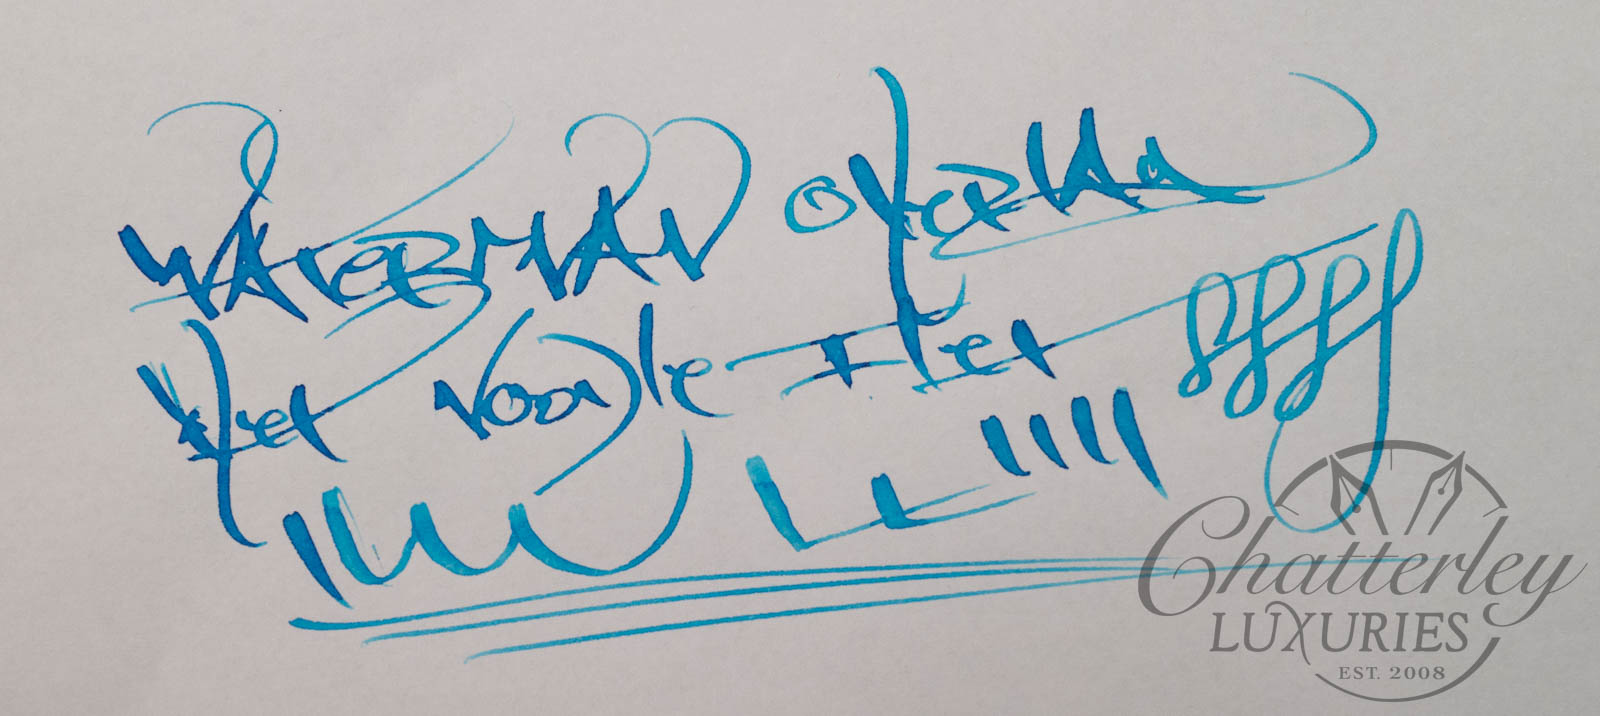 WATERMAN OVERLAY
Wet Noodle Flex
Chatterley
LUXURIES
EST. 2008